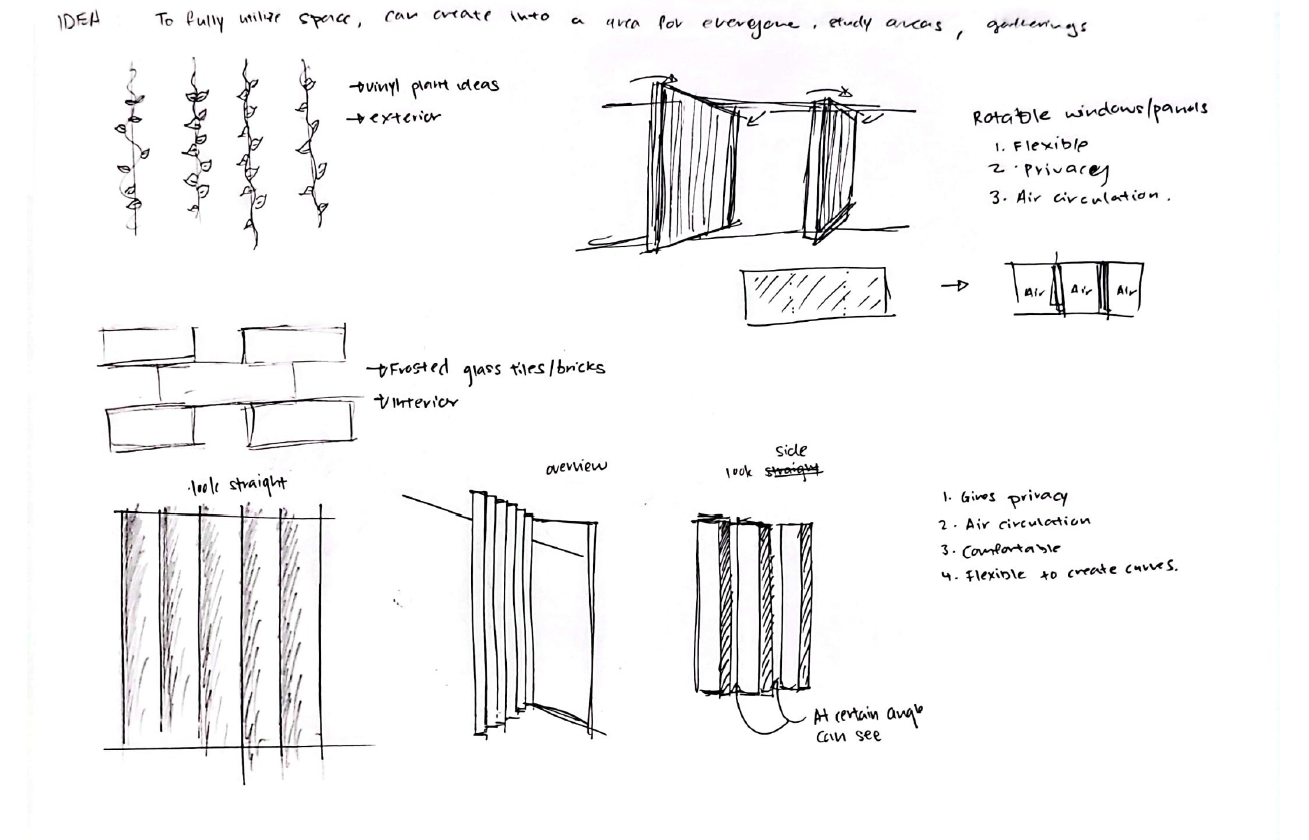 IDEA To fully utilise space, can create into a area for everyone, study areas, gatherings
→ vinyl plant ideas
→ exterior
Rotable windows/panels
1. Flexible
2. Privacy
3. Air circulation.
Air Air Air
→ Frosted glass tiles/bricks
→ Interior
look straight
overview
side
look straight
1. Gives privacy
2. Air circulation
3. Comfortable
4. Flexible to create curves.
At certain angle
can see